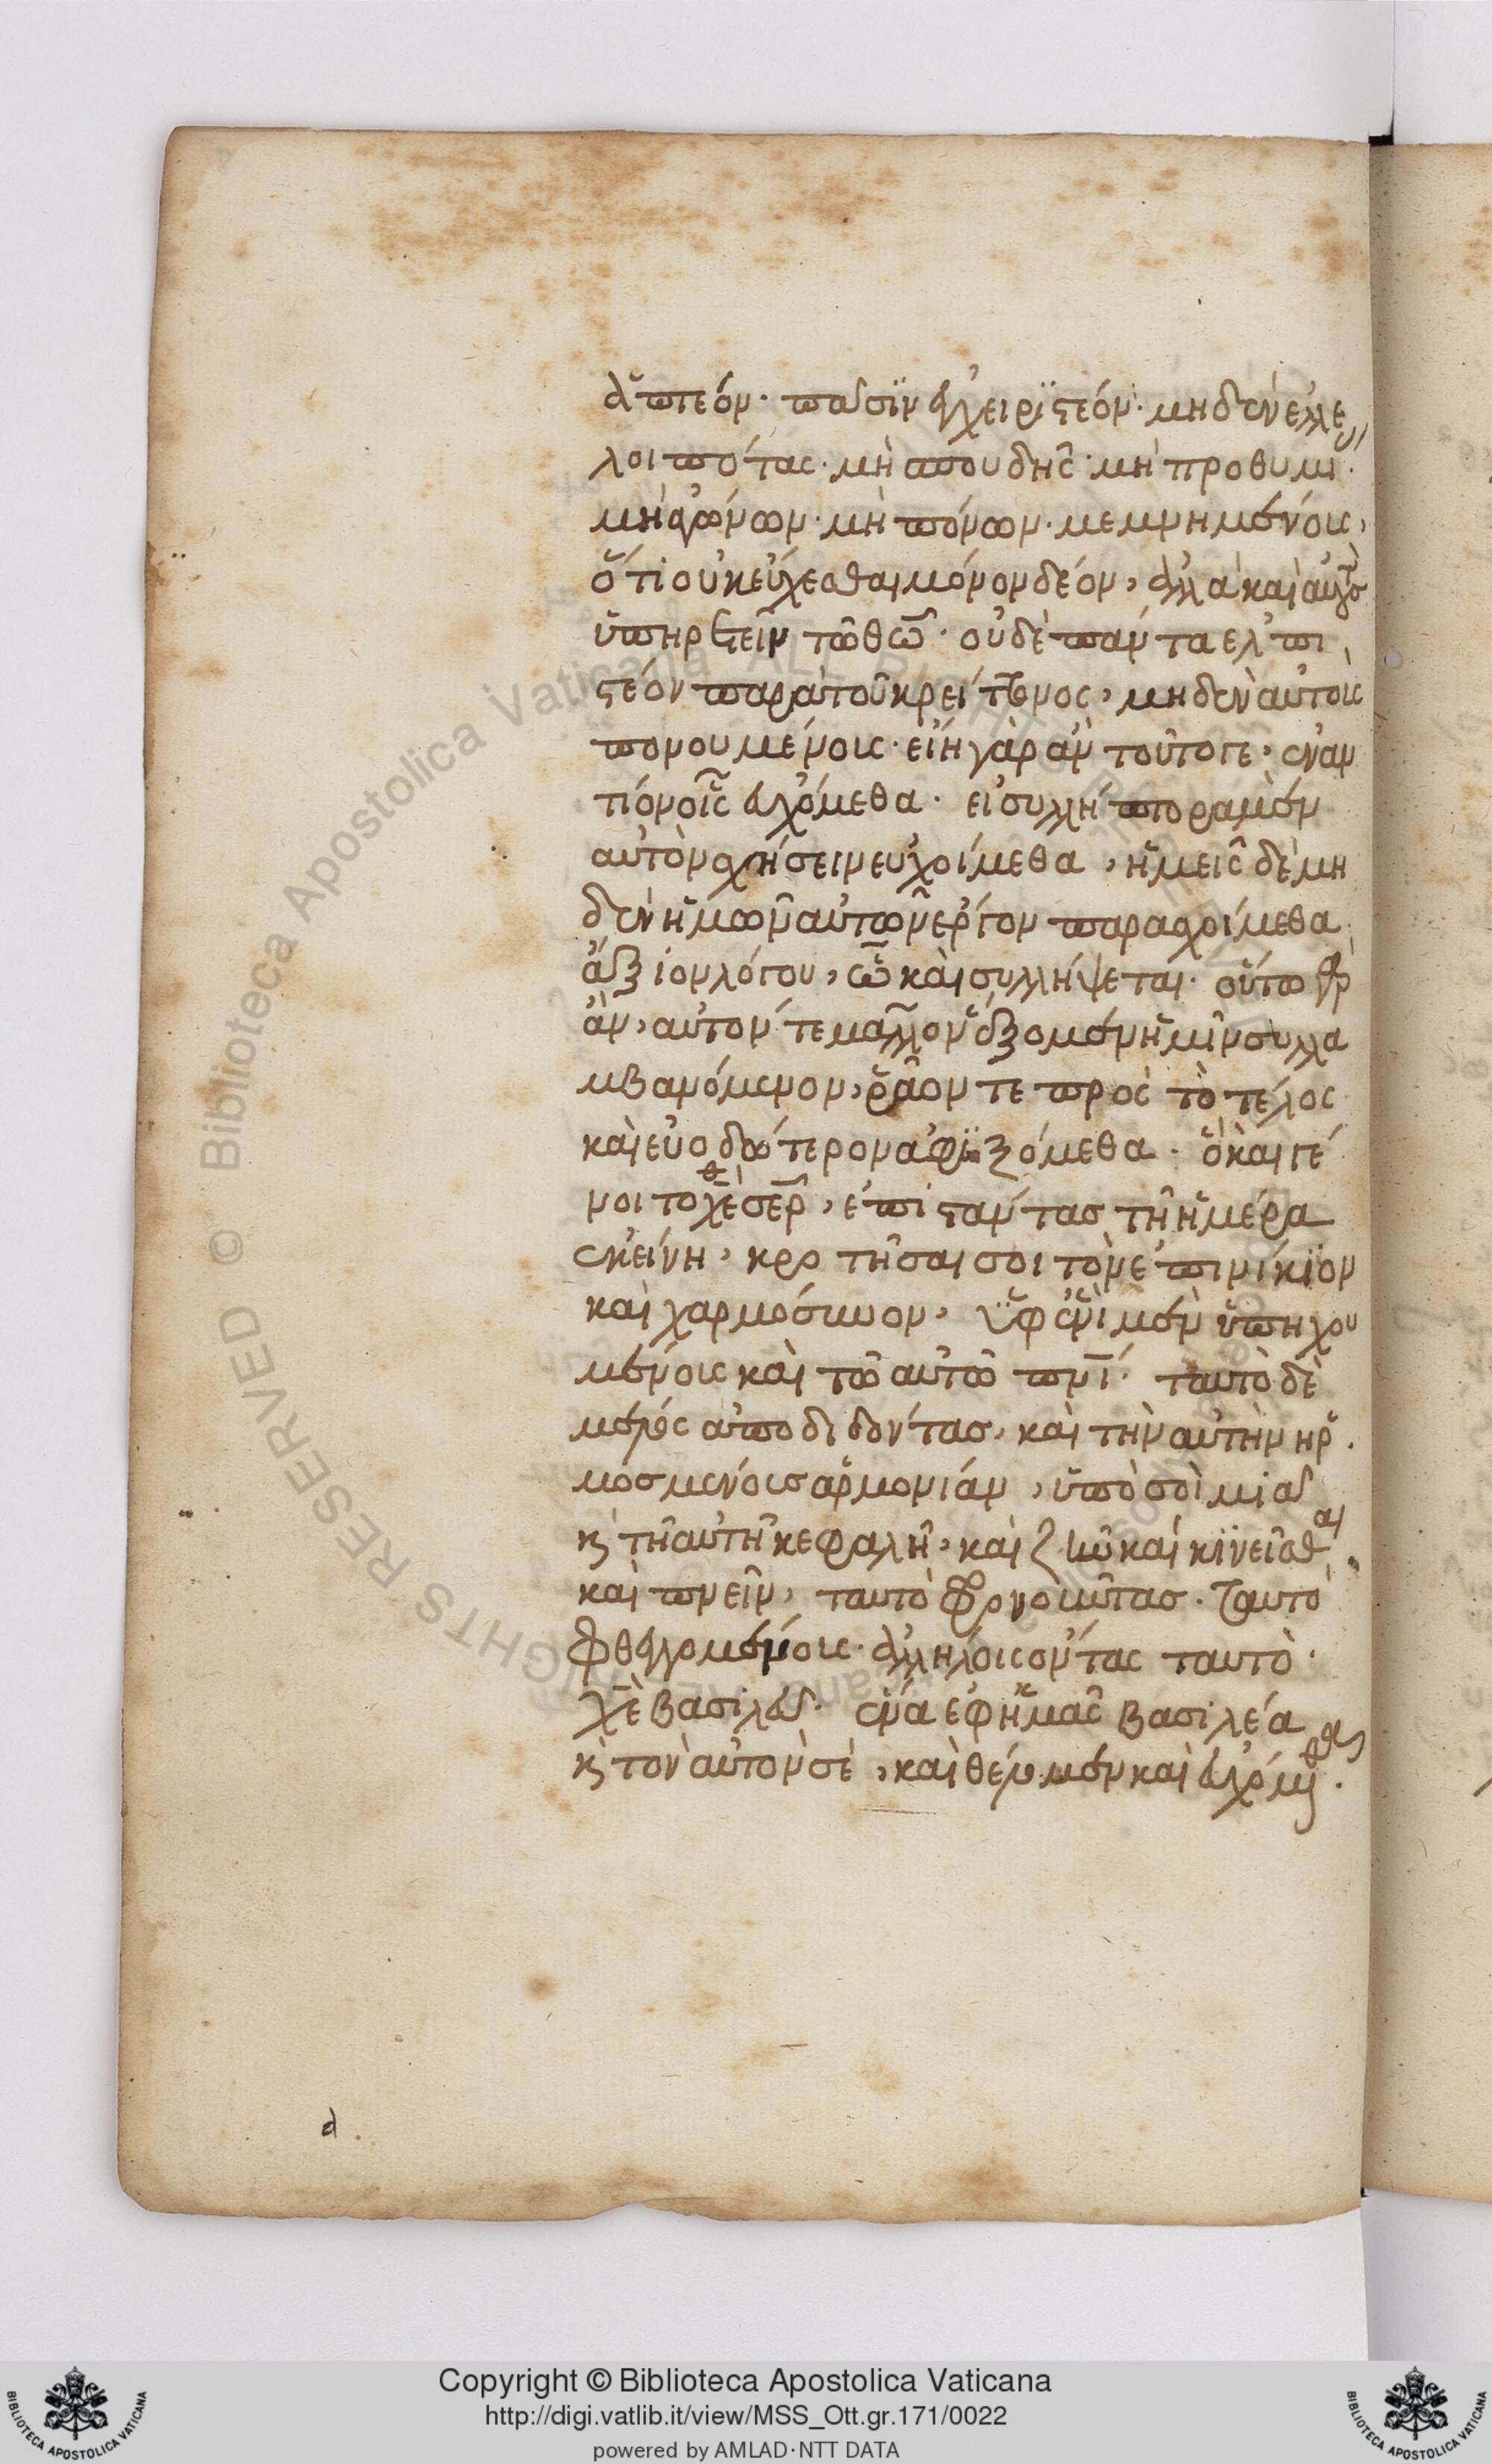 ἁπτέον· πᾶσιν ἐγχειριστέον· μηδὲν ἐλλε
λοιπότας· μὴ σπουδῆς· μὴ προθυμι·
μὴ ἀγώνων· μὴ πόνων· μεμνημένοις,
ὅτι οὐκ εὔχεσθαι μόνον δέον, ἀλλὰ καὶ αὐτ
ὑπηρετεῖν τῶ θῶ· οὐδὲ πάντα ἐλπι
στέον παρὰ τοῦ κρείττονος, μηδὲν αὐτοῖς
πονουμένοις· εἴη γὰρ ἂν τοῦτό γε, ἐναν
τίον οἷς εὐχόμεθα· εἰ συλλήπτορα μὲν
αὐτὸν χρήσειν εὐχοίμεθα, ἡμεῖς δὲ μη
δὲν ἡμῶν αὐτῶν ἔργον παρασχοίμεθα
ἄξιον λόγου, ὧ καὶ συλλήψεται· οὕτω γὰρ
ἂν, αὐτόν τε μᾶλλον ἕξομεν ἡμῖν συλλα
μβανόμενον, ῥᾶον τε πρὸς τὸ τέλος
καὶ εὐοδώτερον ἀφιξόμεθα· ὃ καὶ γέ
νοιτο χὲ σερ, ἐπιστάντας τῆ ἡμέρα
ἐκείνη, κροτῆσαι σοι τὸν ἐπινίκιον
καὶ χαρμόσυνον, ὑφ' ἑνὶ μὲν ὑπηχου
μένοις καὶ τῶ αὐτῶ πνι· ταυτὸ δὲ
μέρος ἀποδιδόντας, καὶ τὴν αὐτὴν ἡρ
μοσμένοις ἁρμονίαν, ὑπὸ σοὶ μιᾶ
κ τῆ αὐτῆ κεφαλῆ, καὶ ζῆν καὶ κινεῖσθαι
καὶ πνεῖν, ταυτὸ φρονοῦντας· ταυτὸ
φθεγγομένοις· ἀλλήλοις ὄντας ταυτὸ·
χὲ βασιλεῦ· ἕνα ἐφ' ἡμᾶς βασιλέα
κ τὸν αὐτὸν σὲ, καὶ θέμενον καὶ
d
Copyright © Biblioteca Apostolica Vaticana
http://digi.vatlib.it/view/MSS_Ott.gr.171/0022
powered by AMLAD·NTT DATA